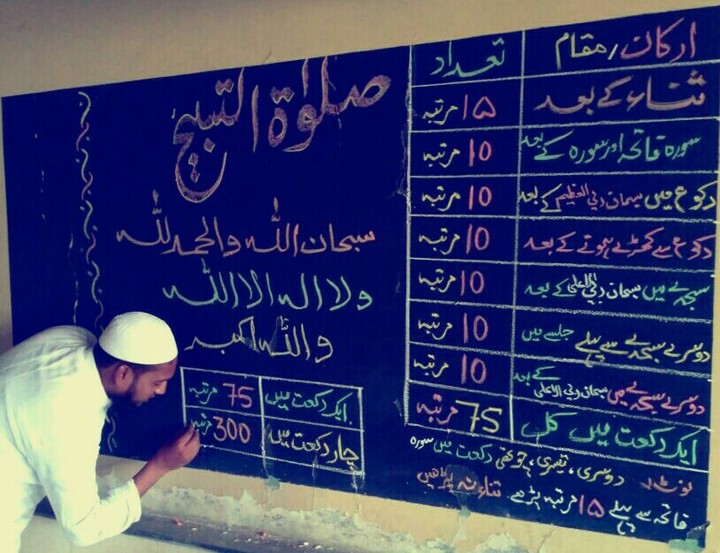 صلوٰۃ التسبیح
سبحان اللہ والحمد للہ
ولا الہ الا اللہ
واللہ اکبر
ایک رکعت میں 75 مرتبہ
چار رکعت میں 300 مرتبہ
ارکان/مقام تعداد
ثناء کے بعد 15 مرتبہ
سورہ فاتحہ اور سورہ کے بعد 10 مرتبہ
رکوع میں سبحان ربی العظیم کے بعد 10 مرتبہ
رکوع سے کھڑے ہونے کے بعد 10 مرتبہ
سجدے میں سبحان ربی الاعلی کے بعد 10 مرتبہ
دوسرے سجدے سے پہلے جلسے میں 10 مرتبہ
دوسرے سجدے میں سبحان ربی الاعلی کے بعد 10 مرتبہ
ایک رکعت میں کل 75 مرتبہ
نوٹ: دوسری، تیسری، چوتھی رکعت میں سورہ
فاتحہ سے پہلے 15 مرتبہ پڑھے ثناء نہ پڑھیں